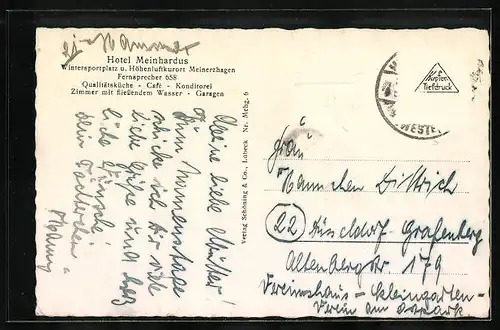 Hotel Meinhardus
Wintersportplatz u. Höhenluftkurort Meinerzhagen
Fernsprecher 658
Qualitätsküche - Café - Konditorei
Zimmer mit fließendem Wasser - Garagen
Meine liebe Mutter!
Zum Namenstage
schicke ich dir viele
liebe Grüße und
Dein Töchterchen
Verlag Schöning & Co., Lübeck Nr. Mehg. 6
Kupfer-
Tiefdruck
WESTF
Frau
Hannchen Dittrich
22 Düsseldorf-Grafenberg
Altenbergstr 179
Vereinshaus - Kleingarten-
Verein am